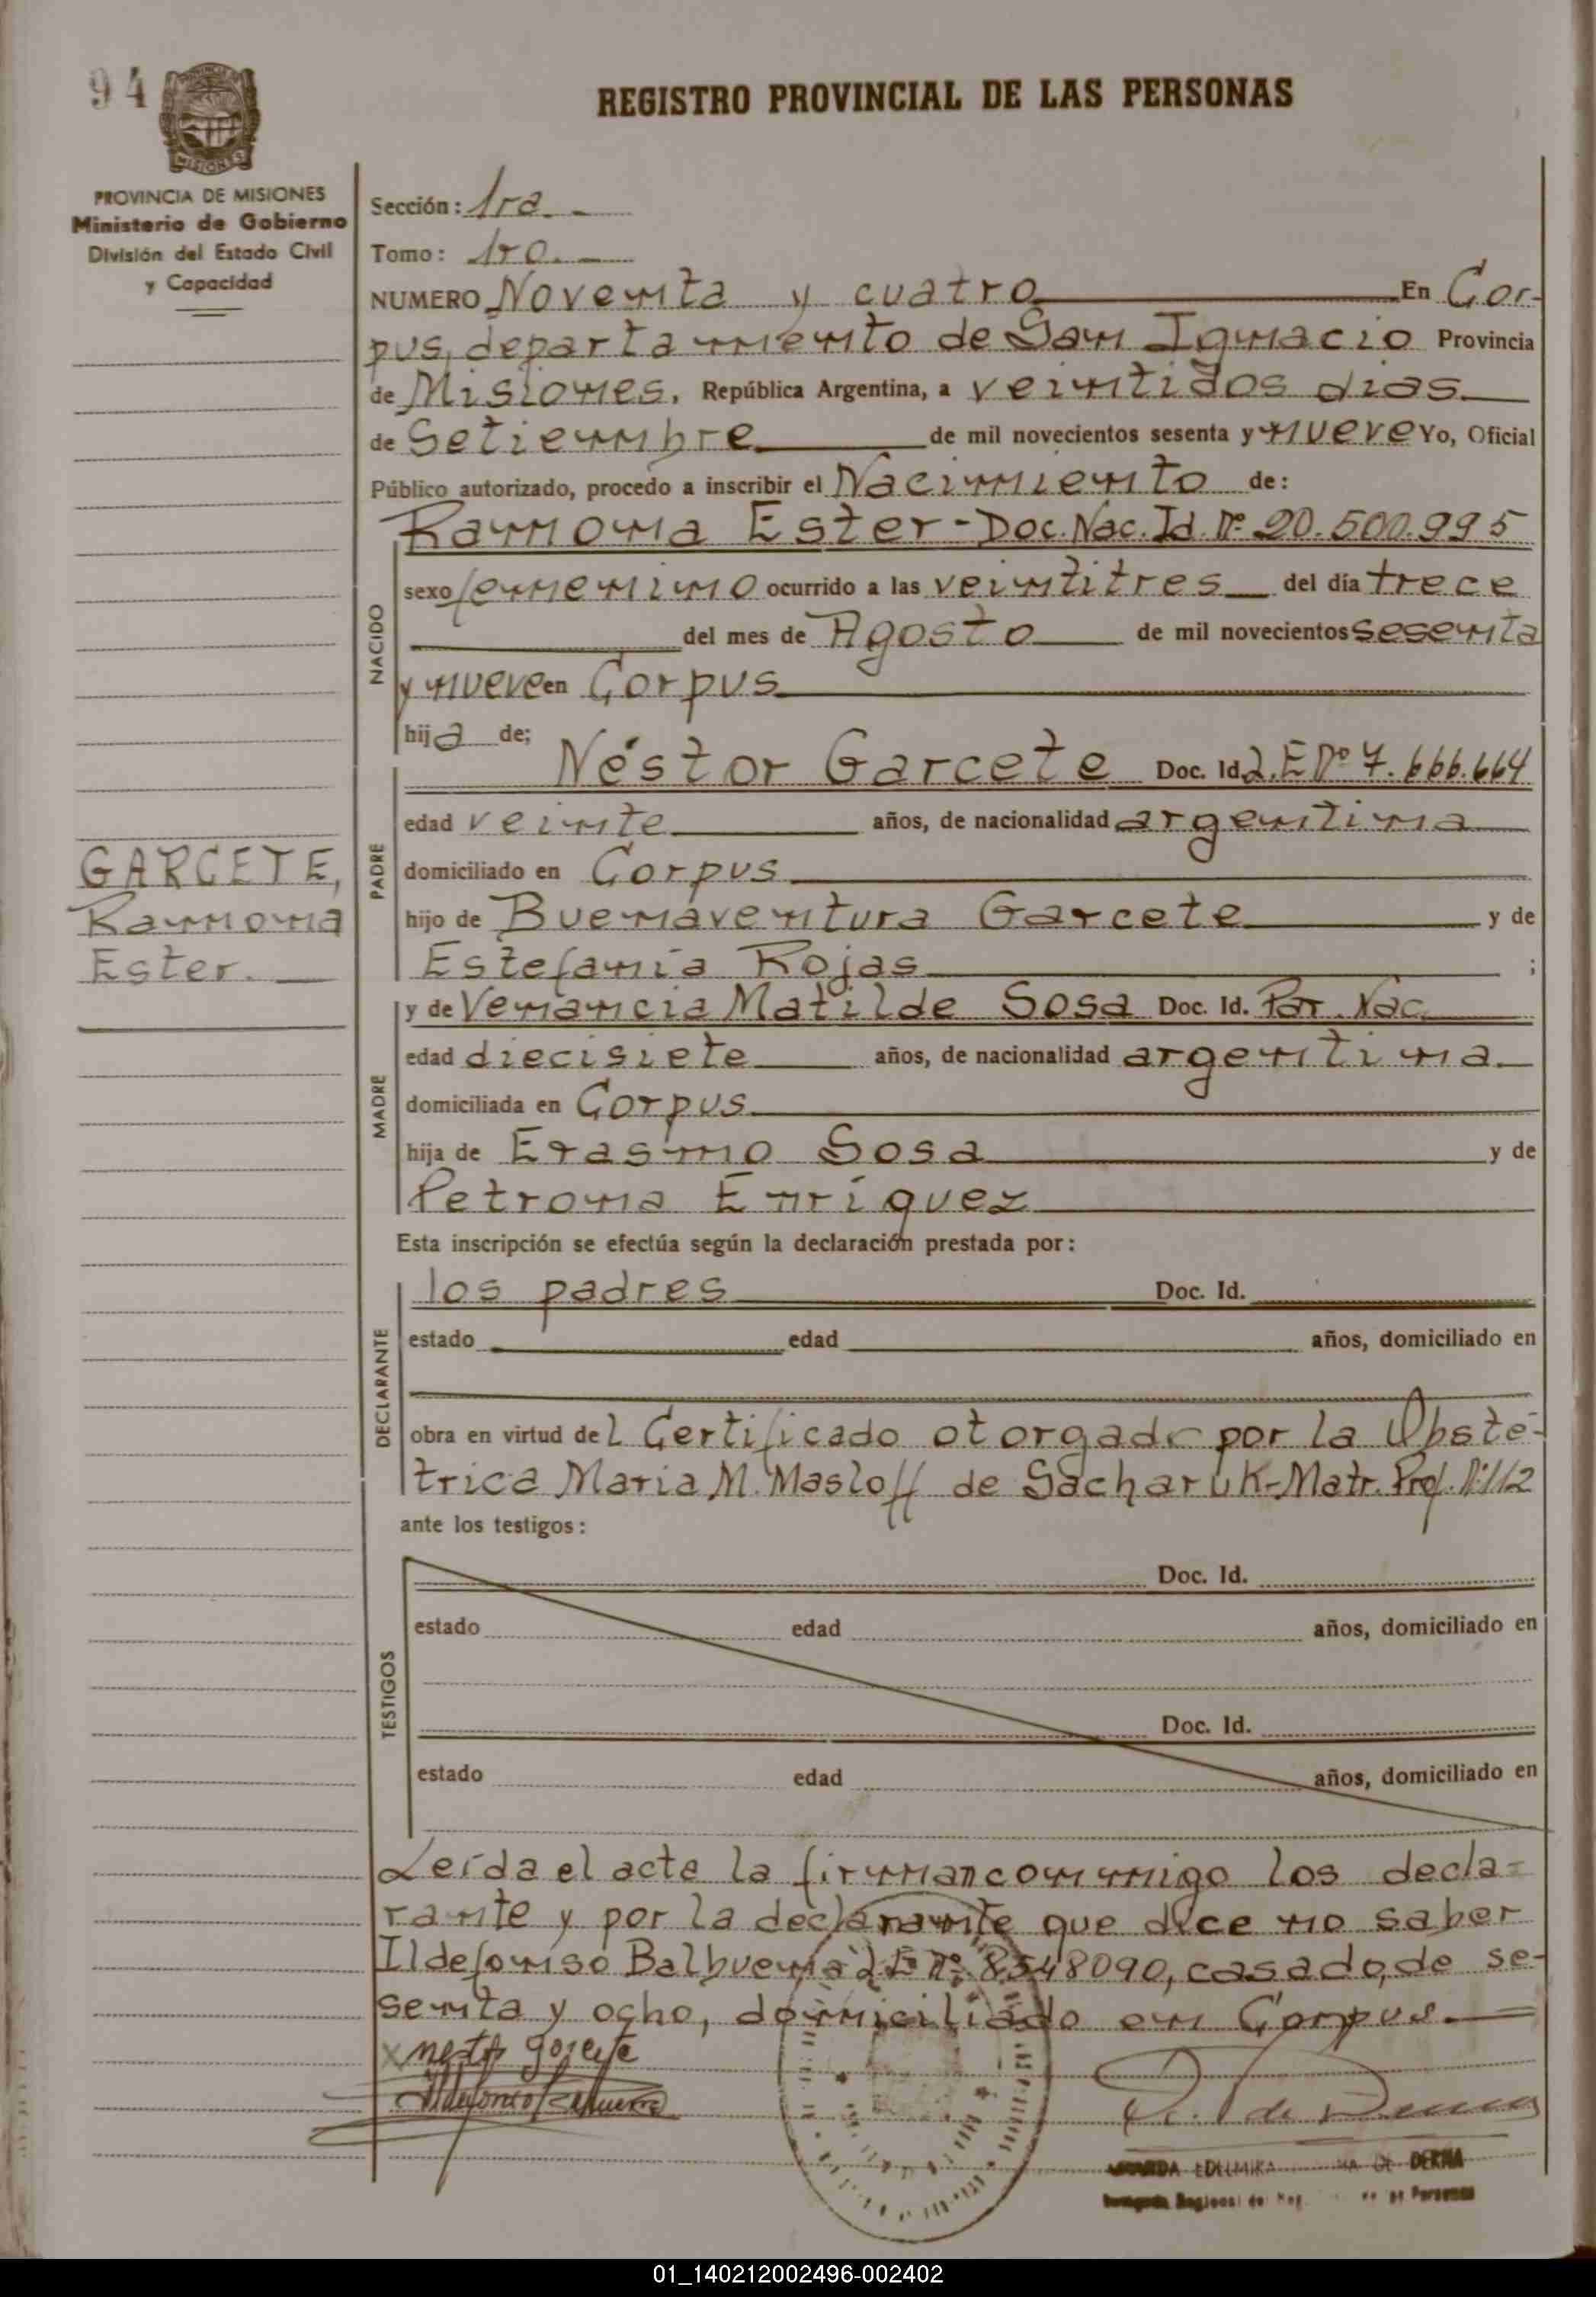 94
REGISTRO PROVINCIAL DE LAS PERSONAS
MISIONES
PROVINCIA DE MISIONES
Ministerio de Gobierno
División del Estado Civil
y Capacidad
Sección: 1ra.-
Tomo: 1ro.-
NUMERO Noventa y cuatro En Cor-
pus, departamento de San Ignacio Provincia
de Misiones, República Argentina, a veintidos dias
de Setiembre de mil novecientos sesenta y nueve Yo, Oficial
Público autorizado, procedo a inscribir el Nacimiento de:
Ramona Ester-Doc.Nac.Id.Nº 20.500.995
NACIDO
sexo femenino ocurrido a las veintitres del día trece
del mes de Agosto de mil novecientos sesenta
y nueve en Corpus
hija de;
Néstor Garcete Doc. Id. L.E Nº 7.666.664
PADRE
edad veinte años, de nacionalidad argentina
domiciliado en Corpus
hijo de Buenaventura Garcete y de
Estefania Rojas ;
GARCETE,
Ramona
Ester.
MADRE
y de Venancia Matilde Sosa Doc. Id. Par. Nac.
edad diecisiete años, de nacionalidad argentina
domiciliada en Corpus
hija de Erasmo Sosa y de
Petrona Enríquez
Esta inscripción se efectúa según la declaración prestada por:
DECLARANTE
los padres Doc. Id.
estado edad años, domiciliado en
obra en virtud del Certificado otorgado por la Obsté-
trica Maria M. Masloff de Sacharuk-Matr. Prof. Nº 112
ante los testigos:
TESTIGOS
Doc. Id.
estado edad años, domiciliado en
Doc. Id.
estado edad años, domiciliado en
Leída el acta la firman conmigo los decla-
rante y por la declarante que dice no saber
Ildefonso Balbuena L E Nº 8548090, casado, de se-
senta y ocho, domiciliado en Corpus.
x nestor garcete
Ildefonso Balbuena
DE DERNA
01_140212002496-002402